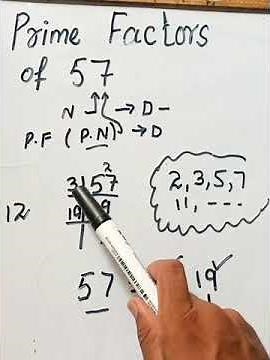 Prime Factors
of 57
N → D -
P.F (P.N) → D
3 57 2
12 19
2, 3, 5, 7
11, ---
57 19